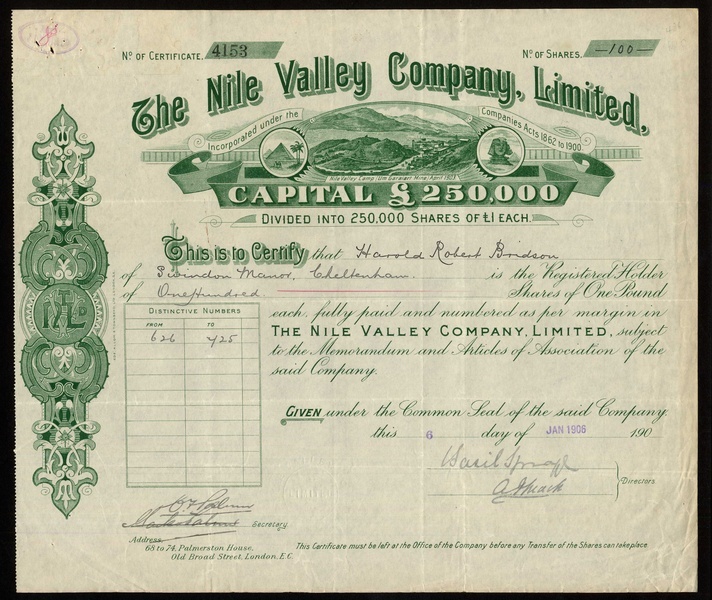 Nº OF CERTIFICATE. 4153
Nº OF SHARES. —100—
The Nile Valley Company, Limited,
Incorporated under the Companies Acts 1862 to 1900.
Nile Valley Camp (Um Garaiart Mine) April 1903
CAPITAL £250,000
DIVIDED INTO 250,000 SHARES OF £1 EACH.
This is to Certify that Harold Robert Bridson
of Swindon Manor, Cheltenham. is the Registered Holder
of One Hundred Shares of One Pound
each, fully paid and numbered as per margin in
THE NILE VALLEY COMPANY, LIMITED, subject
to the Memorandum and Articles of Association of the
said Company.
DISTINCTIVE NUMBERS
FROM TO
626 725
GIVEN under the Common Seal of the said Company.
this 6 day of JAN 1906 190
Directors
Secretary.
Address
68 to 74, Palmerston House,
Old Broad Street, London, E.C.
This Certificate must be left at the Office of the Company before any Transfer of the Shares can take place